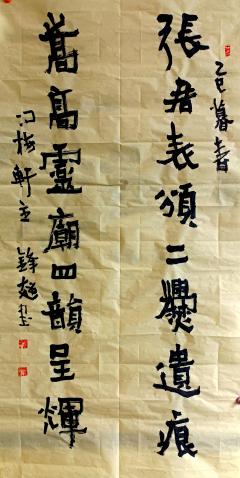 張君表頌二爨遺痕
乙巳暮春
嵩高靈廟四韻呈輝
梅軒主